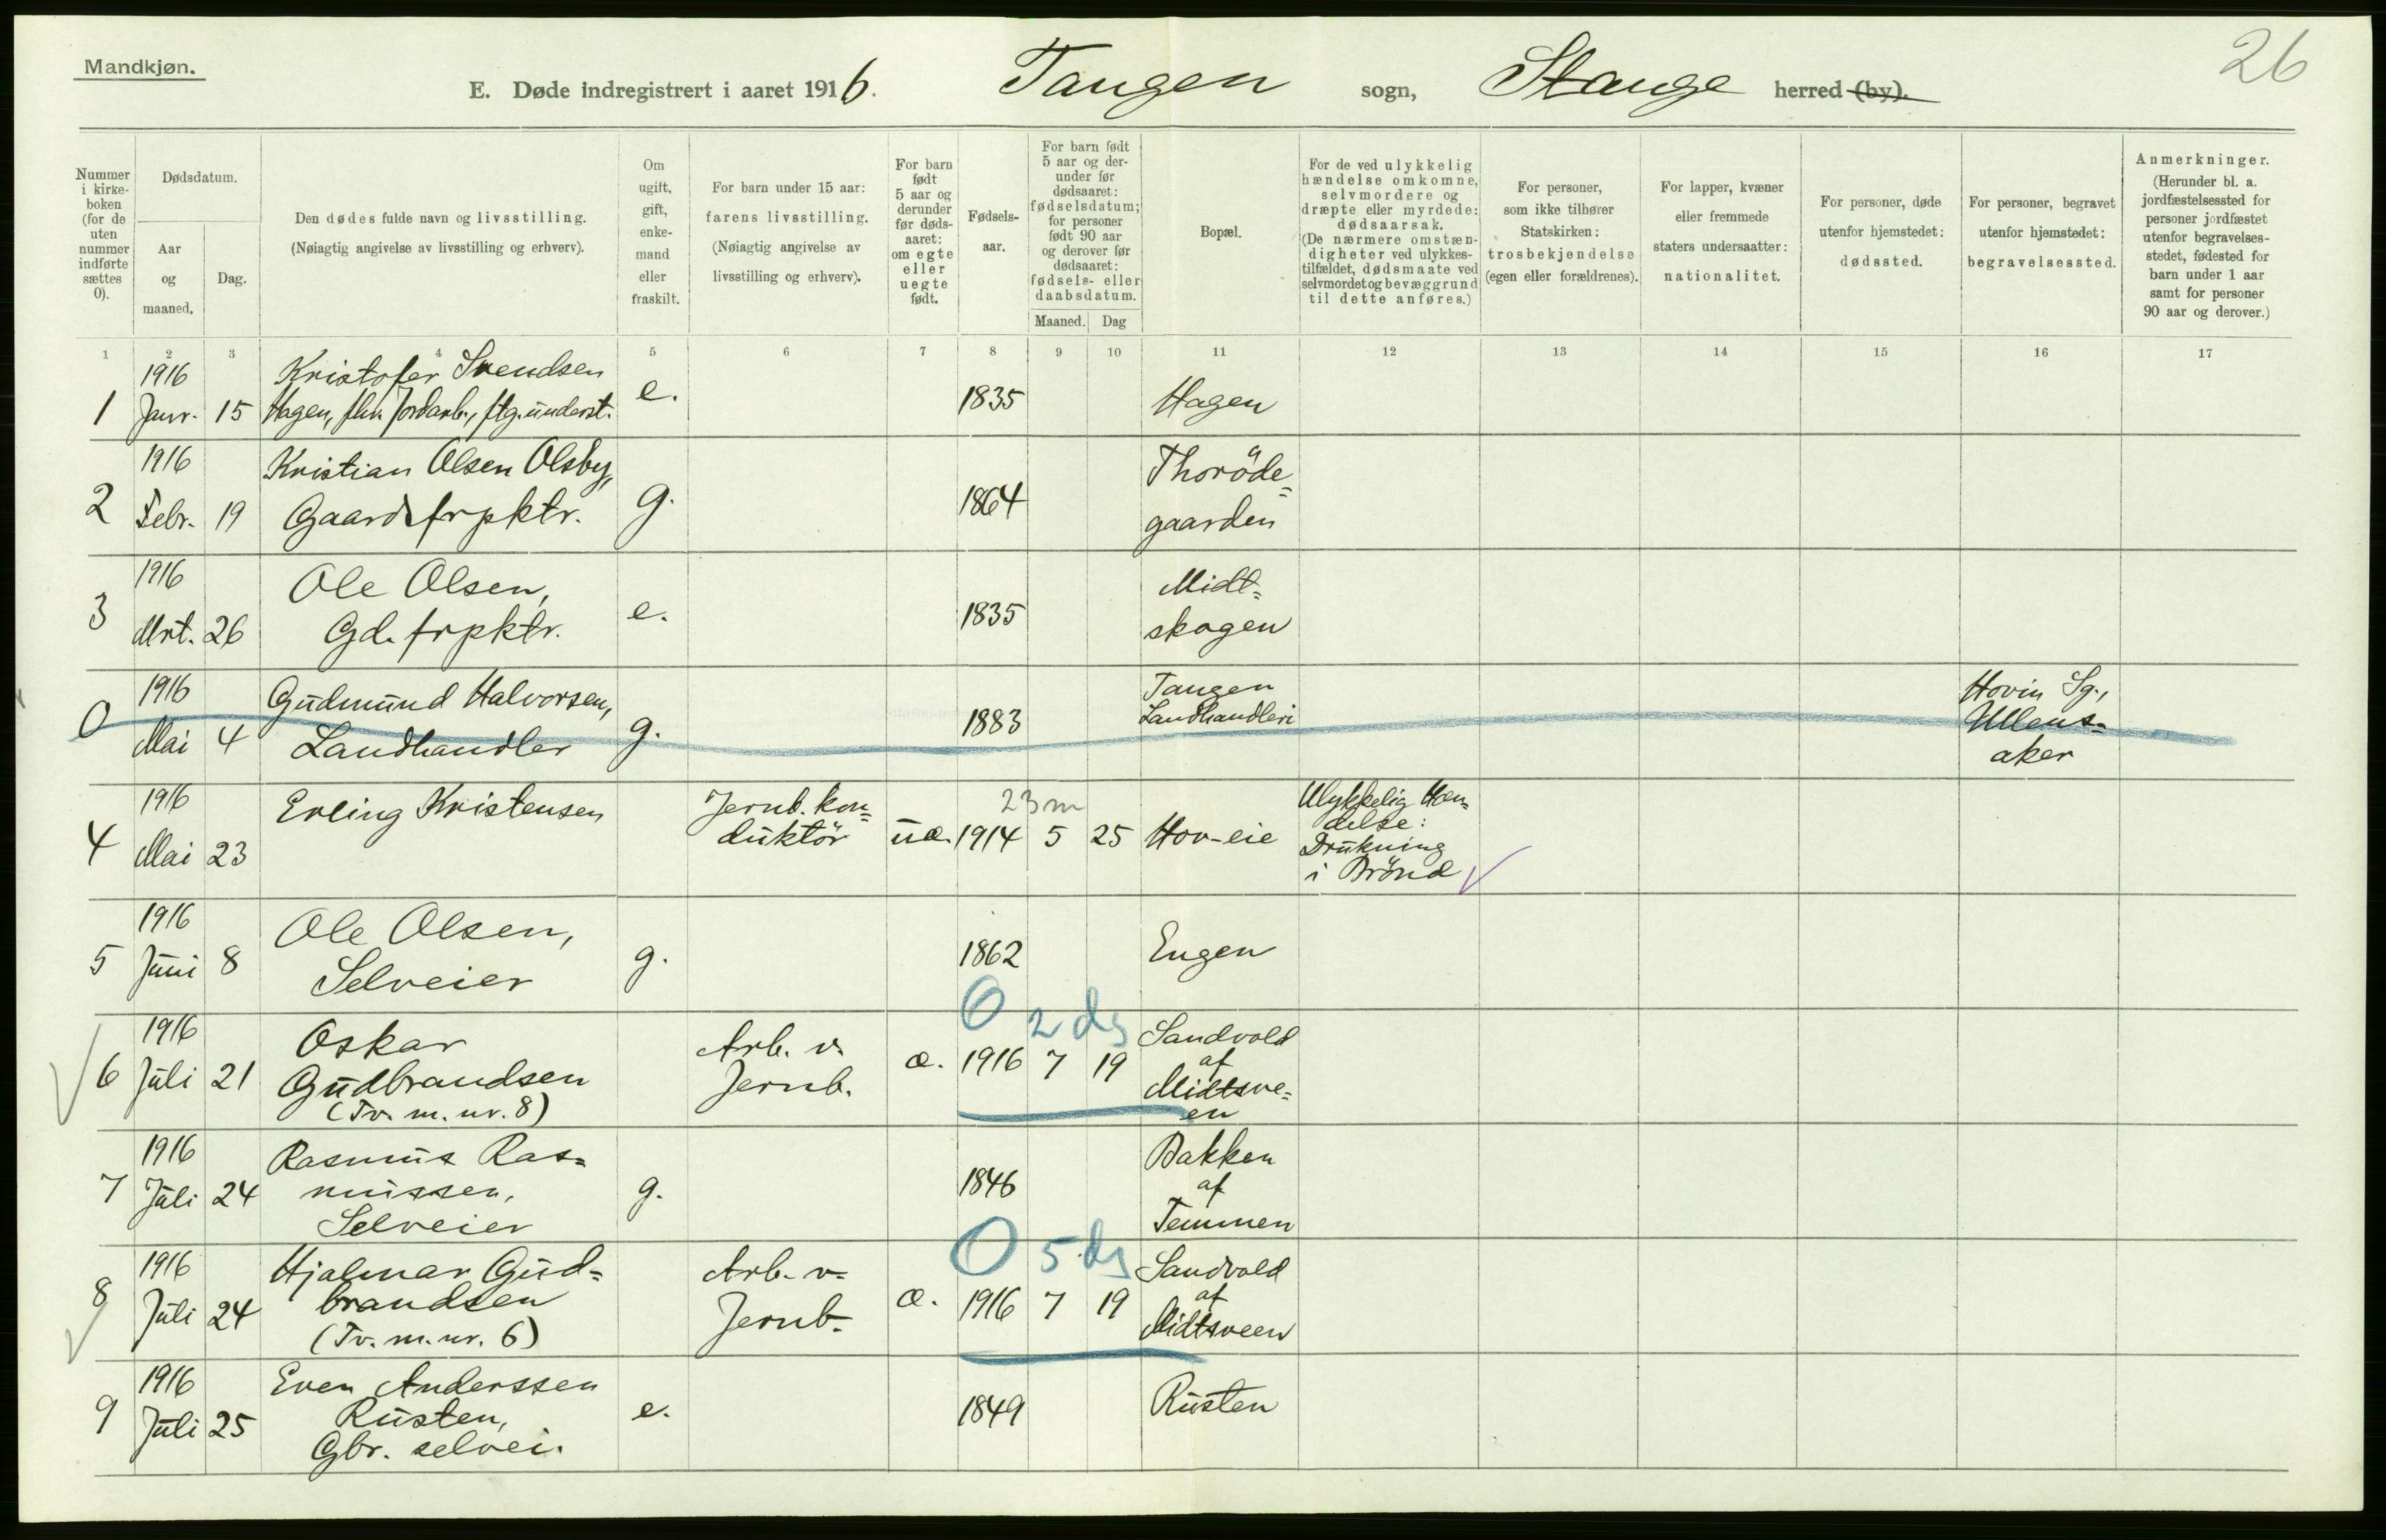 26
Mandkjøn.
E. Døde indregistrert i aaret 1916. Tangen sogn, Stange herred (by).
Nummer i kirke-boken (for de uten nummer indførte sættes 0).
Dødsdatum.
Aar og maaned.
Dag.
Den dødes fulde navn og livsstilling.
(Nøiagtig angivelse av livsstilling og erhverv).
Om ugift, gift, enke-mand eller fraskilt.
For barn under 15 aar:
farens livsstilling.
(Nøiagtig angivelse av
livsstilling og erhverv).
For barn født 5 aar og derunder før døds-aaret: om egte eller uegte født.
Fødsels-aar.
For barn født 5 aar og der-under før dødsaaret: fødselsdatum; for personer født 90 aar og derover før dødsaaret: fødsels- eller daabsdatum.
Maaned. Dag
Bopæl.
For de ved ulykkelig hændelse omkomne, selvmordere og dræpte eller myrdede: dødsaarsak.
(De nærmere omstæn-digheter ved ulykkes-tilfældet, dødsmaate ved selvmordet og bevæggrund til dette anføres.)
For personer, som ikke tilhører Statskirken: trosbekjendelse (egen eller forældrenes).
For lapper, kvæner eller fremmede staters undersaatter: nationalitet.
For personer, døde utenfor hjemstedet: dødssted.
For personer, begravet utenfor hjemstedet: begravelsessted.
Anmerkninger.
(Herunder bl. a. jordfæstelsessted for personer jordfæstet utenfor begravelses-stedet, fødested for barn under 1 aar samt for personer 90 aar og derover.)
1 2 3 4 5 6 7 8 9 10 11 12 13 14 15 16 17
1916 Kristofer Svendsen
1 Janr. 15 Hagen, fhv. Jordarb., ftg. underst. e. 1835 Hagen
1916 Kristian Olsen Olsby, Thoröde=
2 Febr. 19 Gaardsfrpktr. g. 1864 gaarden
1916 Ole Olsen, Midt=
3 Mrt. 26 Gd. frpktr. e. 1835 skogen
1916 Gudmund Halvorsen, Tangen Hovin Sg.,
0 Mai 4 Landhandler g. 1883 Landhandleri Ullens=
aker
1916 Erling Kristensen Jernb. kon= 23 m Ulykkelig Hæn=
4 Mai 23 duktör uæ. 1914 5 25 Hov-eie delse:
Drukning
i Brönd
1916 Ole Olsen,
5 Juni 8 Selveier g. 1862 Engen
0 2 ds
1916 Oskar Arb. v. Sandvold
6 Juli 21 Gudbrandsen Jernb. æ. 1916 7 19 af
(Tv. m. nr. 8) Midtsve=
en
1916 Rasmus Ras= Bakken
7 Juli 24 mussen, g. 1846 af
Selveier Temmen
0 5 ds
1916 Hjalmar Gud= Arb. v. Sandvold
8 Juli 24 brandsen Jernb. æ. 1916 7 19 af
(Tv. m. nr. 6) Midtsveen
1916 Even Anderssen
9 Juli 25 Rusten, e. 1849 Rusten
Gbr. selvei.